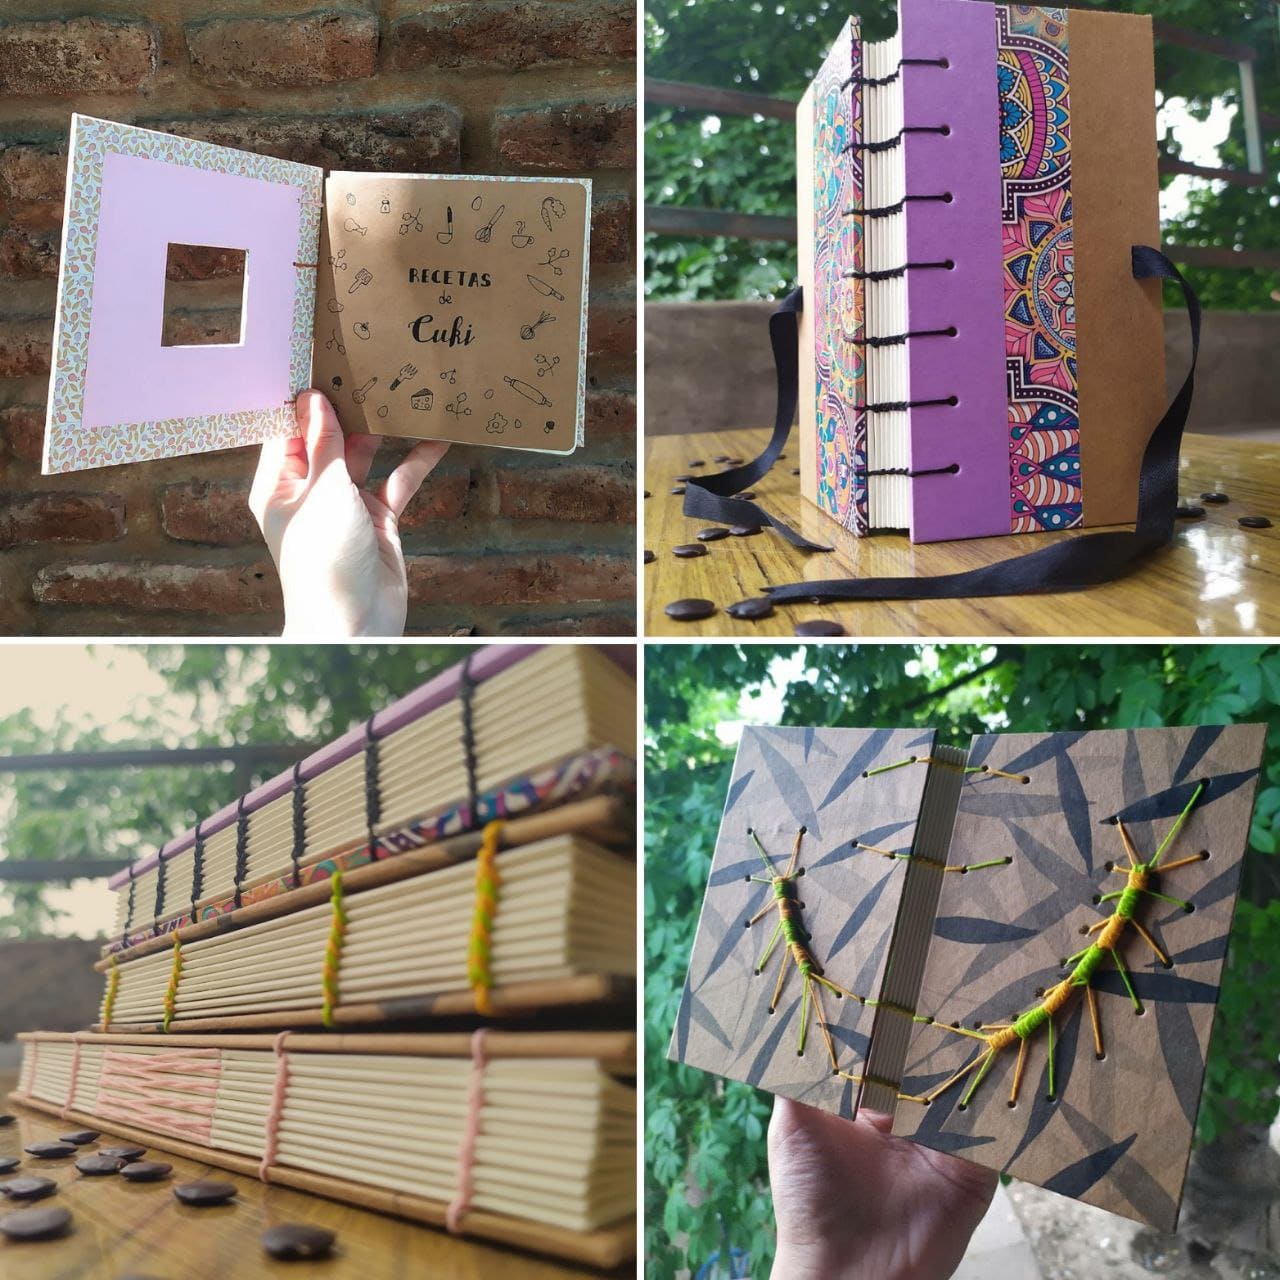 RECETAS
de
Cuki